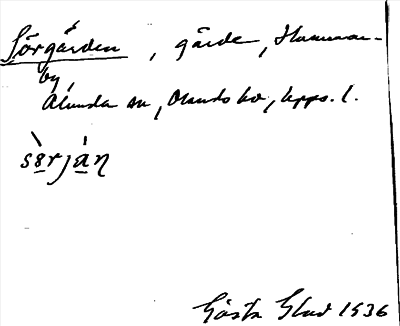 Sörgården, gärde, Hammar-
by,
Alunda sn, Olands hd, Upps. l.
sörjan
Gösta Glad 1936